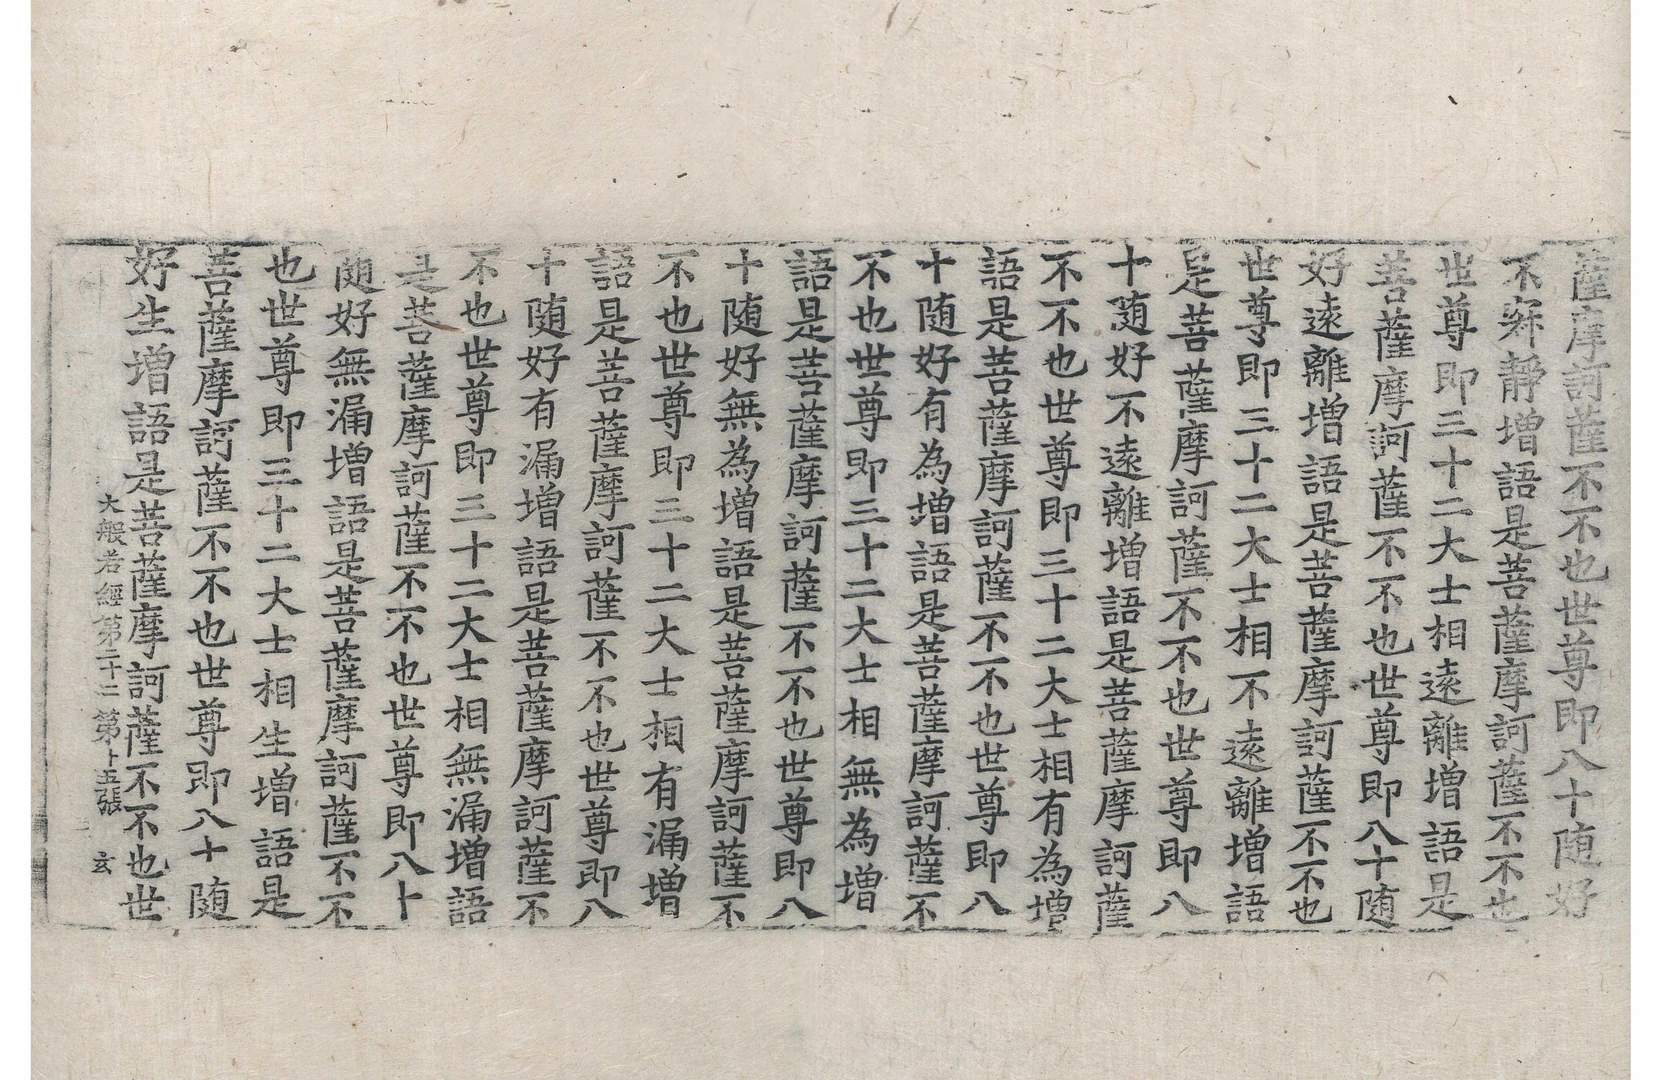 薩摩訶薩不不也世尊即八十随好
不寂靜增語是菩薩摩訶薩不不也
世尊即三十二大士相遠離增語是
菩薩摩訶薩不不也世尊即八十随
好遠離增語是菩薩摩訶薩不不也
世尊即三十二大士相不遠離增語
是菩薩摩訶薩不不也世尊即八
十随好不遠離增語是菩薩摩訶薩
不不也世尊即三十二大士相有為增
語是菩薩摩訶薩不不也世尊即八
十随好有為增語是菩薩摩訶薩不
不也世尊即三十二大士相無為增
語是菩薩摩訶薩不不也世尊即八
十随好無為增語是菩薩摩訶薩不
不也世尊即三十二大士相有漏增
語是菩薩摩訶薩不不也世尊即八
十随好有漏增語是菩薩摩訶薩不
不也世尊即三十二大士相無漏增語
是菩薩摩訶薩不不也世尊即八十
随好無漏增語是菩薩摩訶薩不不
也世尊即三十二大士相生增語是
菩薩摩訶薩不不也世尊即八十随
好生增語是菩薩摩訶薩不不也世
大般若經第二十二 第十五張 玄